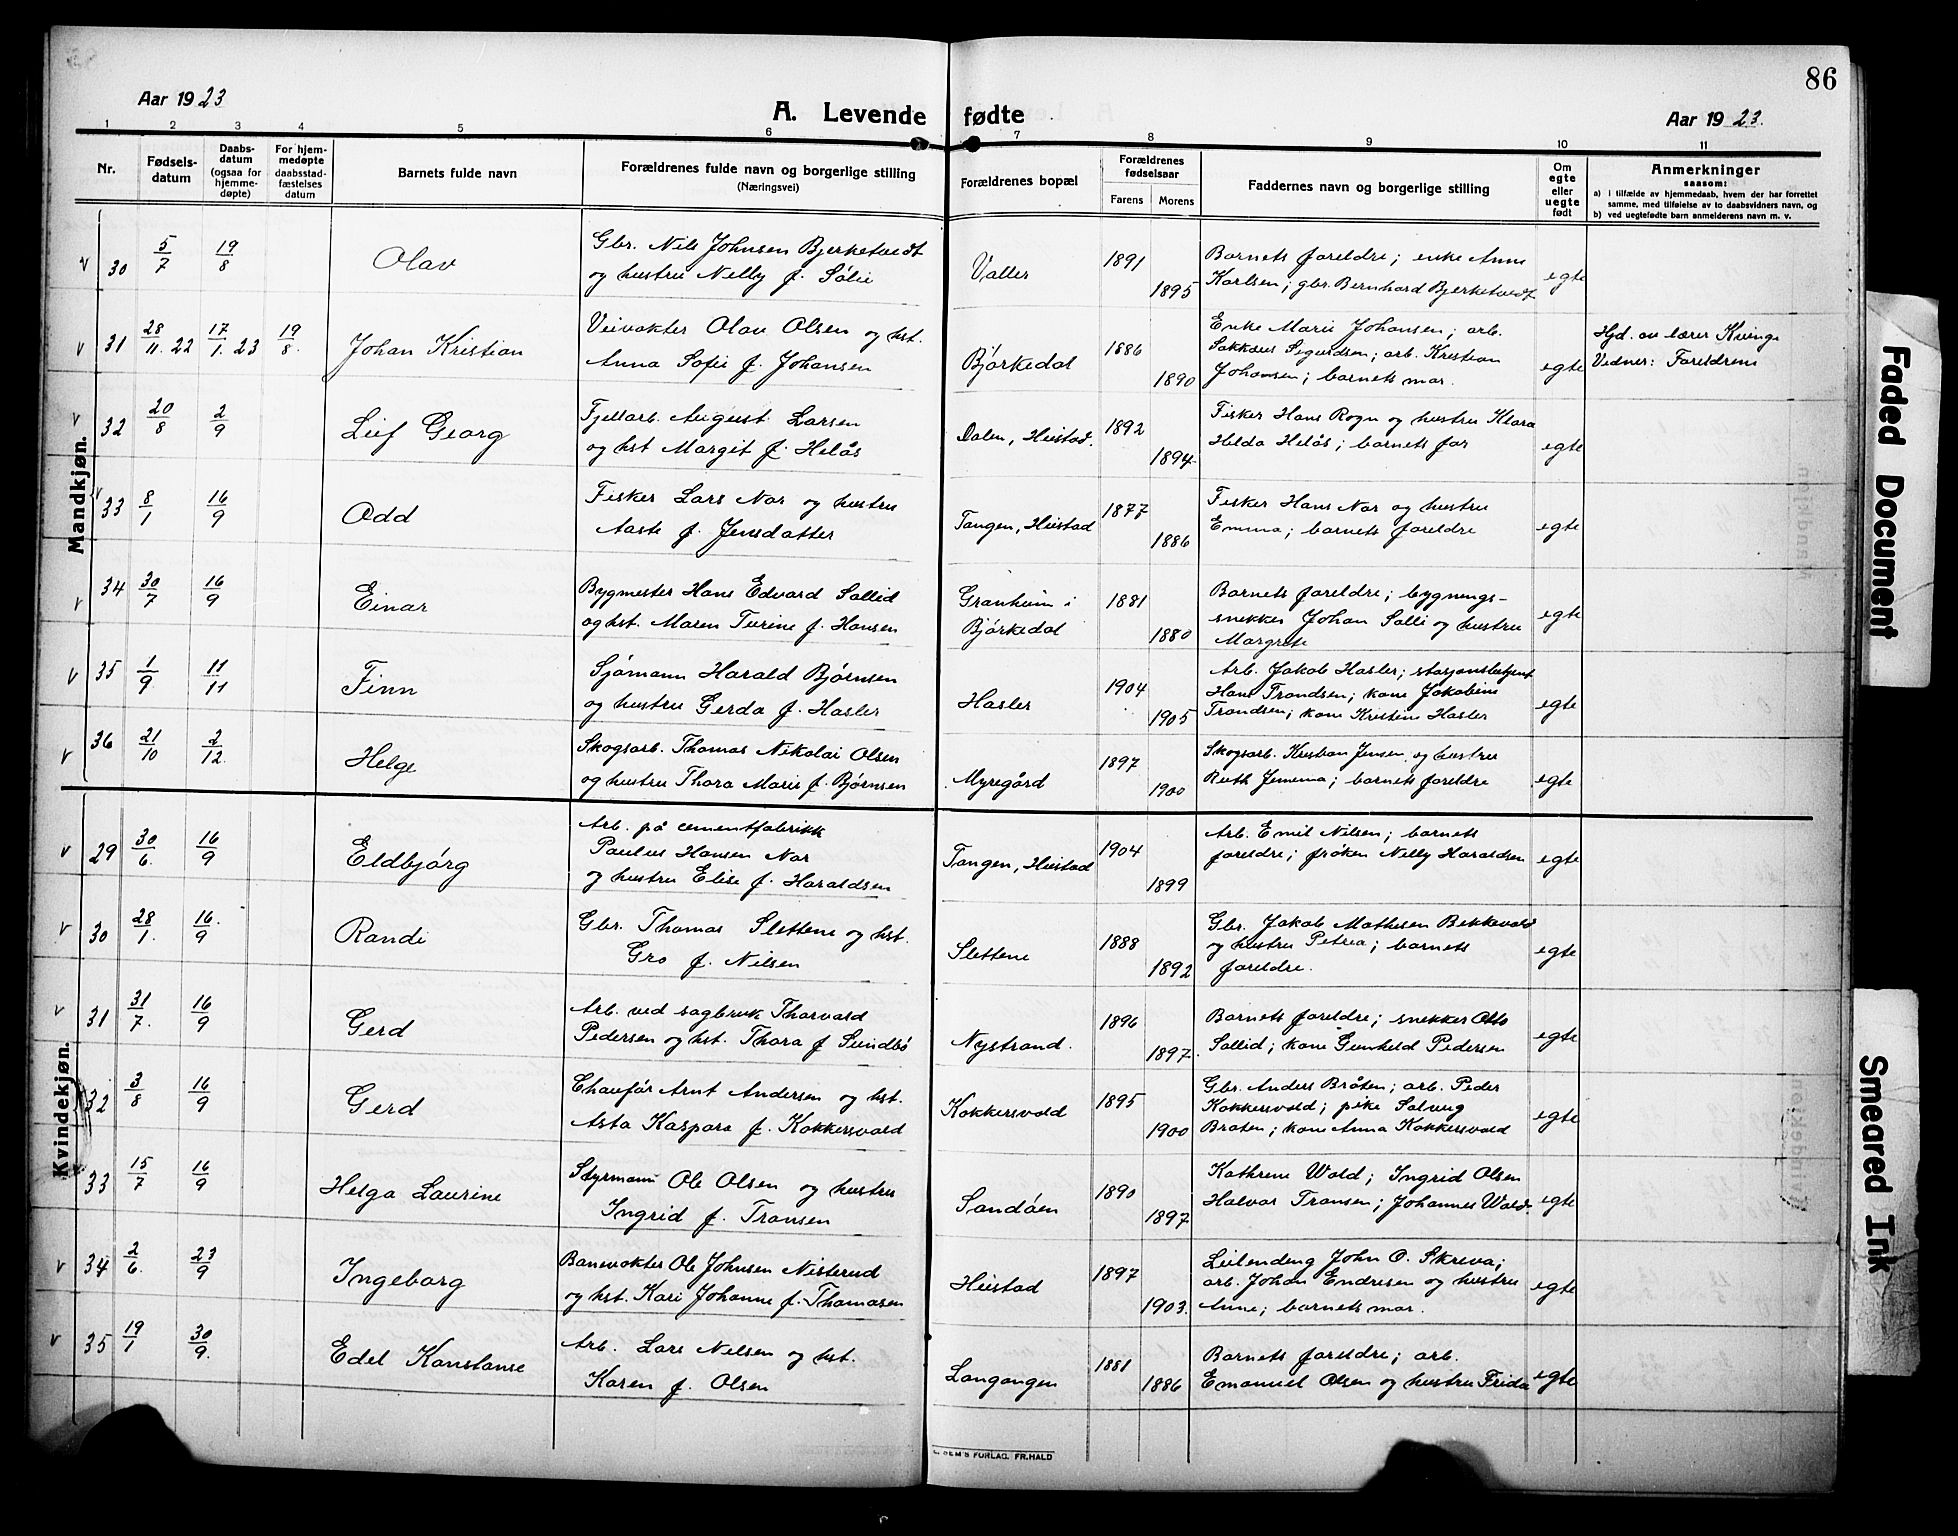 86
Aar 1923
A. Levende fødte
Aar 1923.
1 2 3 4 5 6 7 8 9 10 11
Nr.
Fødsels-
datum
Daabs-
datum
(ogsaa for
hjemme-
døpte)
For hjem-
medøpte
daabsstad-
fæstelses
datum
Barnets fulde navn
Forældrenes fulde navn og borgerlige stilling
(Næringsvei)
Forældrenes bopæl
Forældrenes
fødselsaar
Farens Morens
Faddernes navn og borgerlige stilling
Om
egte
eller
uegte
født
Anmerkninger
saasom:
a) i tilfælde av hjemmedaab, hvem der har forrettet
samme, med tilføielse av to daabsvidners navn, og
b) ved uegtefødte barn anmelderens navn m. v.
Mandkjøn.
v 30 5/7 19/8 Olav
Gbr. Nils Johnsen Bjerketvedt
og hustru Nelly f. Sølie
Valler 1891 1895
Barnets foreldre; enke Anne
Karlsen; gbr. Bernhard Bjerketvedt
egte
v 31 28/11. 22 17/1. 23 19/8. Johan Kristian
Veivokter Olav Olsen og hst.
Anna Sofie f. Johansen
Bjørkedal 1886 1890
Enke Marie Johansen; arb.
Sakkæus Sigurdsen; arb. Kristian
Johansen; barnets mor.
egte
Hjd. av lærer Kvinge
Vidner: Foreldrene
v 32 20/8 2/9 Leif Georg
Fjellarb. August Larsen
og hst Margit f. Helås
Dalen, Heistad. 1892 1894
Fisker Hans Rogn og hustru Klara
Helda Helås; barnets far
egte
v 33 8/1 16/9 Odd
Fisker Lars Nar og hustru
Aaste f. Jensdatter
Tangen, Heistad 1877 1886
Fisker Hans Nar og hustru
Emma; barnets foreldre
egte
v 34 30/7 16/9 Einar
Bygmester Hans Edvard Sollid
og hst. Maren Turine f. Hansen
Granheim i
Bjørkedal
1881 1880
Barnets foreldre; bygnings-
snekker Johan Solli og hustru
Margrete
egte
v 35 1/9 11/11 Finn
Sjømann Harald Bjørnsen
og hustru Gerda f. Hasler
Hasler 1904 1905
Arb. Jakob Hasler; stasjonsbetjent
Hans Trondsen; kone Jakobine
Trondsen; kone Kristine Hasler
egte
v 36 21/10 2/12. Helge
Skogsarb. Thomas Nikolai Olsen
og hustru Thora Marie f. Bjørnsen
Myregård 1897 1900
Skogsarb. Kristian Jensen og hustru
Ruth Jemima; barnets foreldre
egte
Kvindekjøn.
v 29 30/6. 16/9 Eldbjørg
Arb. på cementfabrikk
Paulus Hansen Nar
og hustru Elise f. Haraldsen
Tangen, Heistad 1904 1899
Arb. Emil Nilsen; barnets
foreldre; frøken Nelly Haraldsen
egte
v 30 28/1. 16/9 Randi
Gbr. Thomas Slettene og hst.
Gro f. Nilsen
Slettene 1888 1892
Gbr. Jakob Mathisen Bekkevold
og hustru Petrea; barnets
foreldre.
egte
v 31 31/7. 16/9 Gerd
Arb. ved sagbruk Thorvard
Pedersen og hst. Thora f Sundbø
Nystrand. 1896 1897.
Barnets foreldre; snekker Otto
Sollid; kone Gunhild Pedersen
egte
32 3/8 16/9 Gerd
Chauffør Arnt Andersen og hst.
Asta Kaspara f. Kokkersvold
Kokkersvold 1895 1900
Gbr. Anders Bråten; arb. Peder
Kokkersvold; pike Solveig
Bråten; kone Anna Kokkersvold
egte
33 15/7 16/9 Helga Laurine
Styrmann Ole Olsen og hustru
Ingrid f. Transen
Sandøen 1890 1897
Kathrine Wold; Ingrid Olsen
Halvor Transen; Johannes Wold.
egte
v 34 2/6. 23/9 Ingeborg
Banevokter Ole Johnsen Nisterud
og hst. Kari Johanne f. Thomasen
Heistad 1897 1903.
Leilending John O. Skreva;
arb. Johan Endresen og hustru
Anne; barnets mor.
egte
v 35 19/1 30/9. Edel Konstanse
Arb. Lars Nilsen og hst.
Karen f. Olsen
Langangen 1881 1886
Barnets foreldre; arb.
Emanuel Olsen og hustru Frida
egte
SEM'S FORLAG, FR.HALD
Faded Document
Smeared Ink